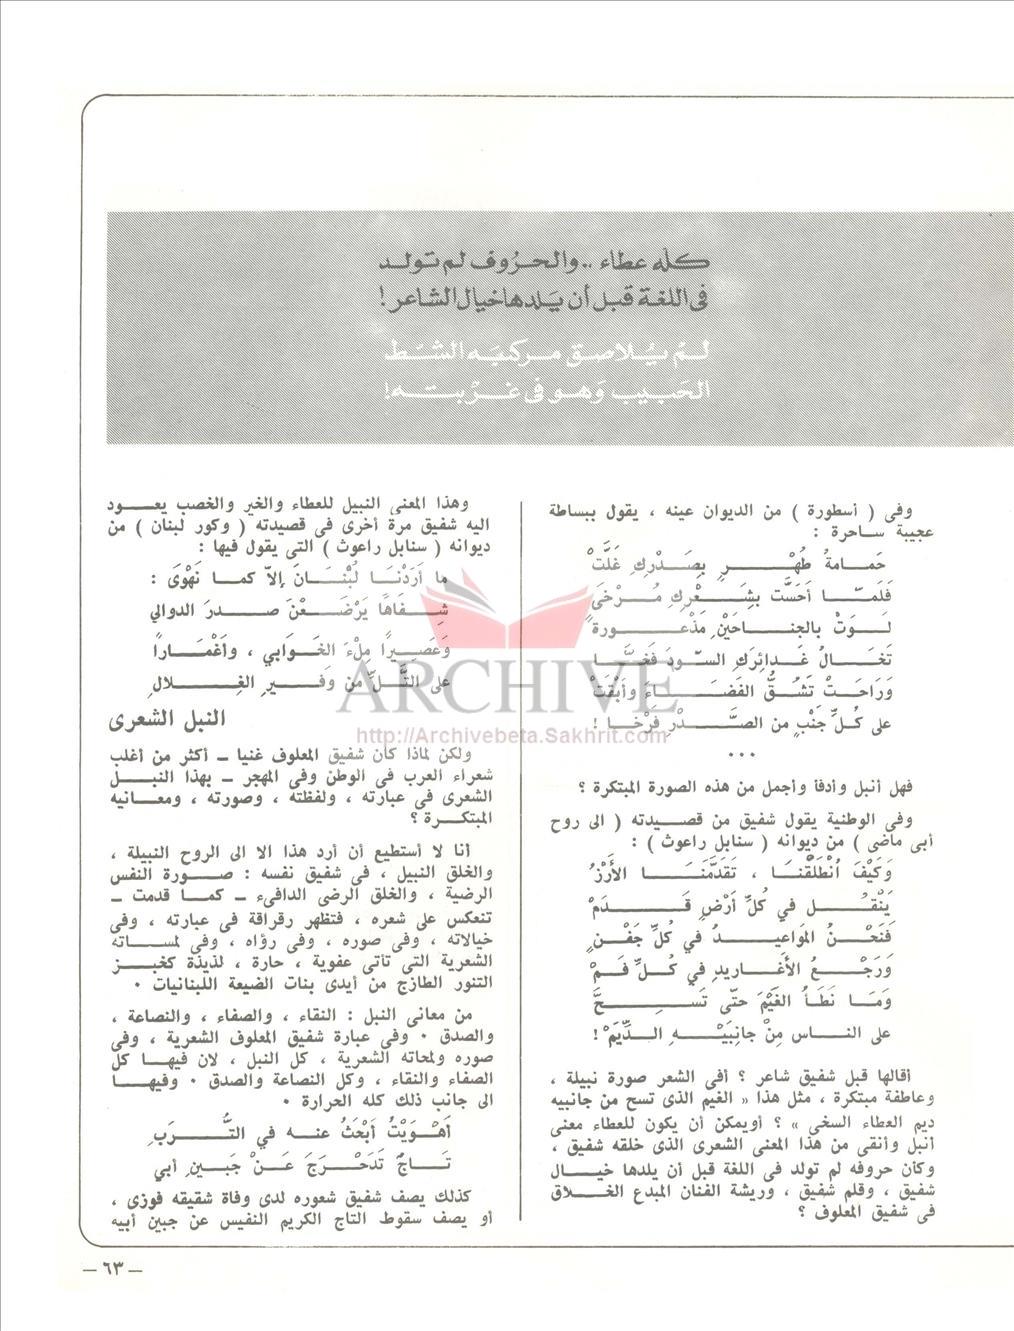 كله عطاء .. والحروف لم تولد
فى اللغة قبل أن يلدها خيال الشاعر !
لم يلاصق مركبه الشط
الحبيب وهو فى غربته !
وفى ( أسطورة ) من الديوان عينه ، يقول ببساطة
عجيبة ساحرة :
حَمامةُ طُهْرٍ بِصَدْرِكِ غَلَّتْ
فَلَمّا أحَسَّت بِشَعْرِكِ مُرْخَىً
لَوَتْ بالجناحَيْنِ مَذْعورةً
تَخالُ غَدائِرَكِ السّودَ فَخّا
وَرَاحَتْ تَشُقُّ الفَضَاءَ وأبْقَتْ
على كُلِّ جَنْبٍ من الصَّدْرِ فَرْخا !
•••
فهل أنبل وأدفأ وأجمل من هذه الصورة المبتكرة ؟
وفى الوطنية يقول شفيق من قصيدته ( الى روح
أبى ماضى ) من ديوانه ( سنابل راعوث ) :
وَكَيْفَ انْطَلَقْنا ، تَقَدَّمَنَا الأرْزُ
يَنْقُل في كُلِّ أرْضٍ قَدَمْ
فَنَحْنُ المَواعيدُ في كُلِّ جَفْنٍ
وَرَجْعُ الأغَاريدِ فِي كُلِّ فَمْ
وَمَا نَطَأُ الغَيْمَ حتّى تَسِحَّ
على الناس مِنْ جانِبَيْهِ الدِّيَمْ !
أقالها قبل شفيق شاعر ؟ أفى الشعر صورة نبيلة ،
وعاطفة مبتكرة ، مثل هذا « الغيم الذى تسح من جانبيه
ديم العطاء السخى » ؟ أويمكن أن يكون للعطاء معنى
أنبل وأنقى من هذا المعنى الشعرى الذى خلقه شفيق ،
وكأن حروفه لم تولد فى اللغة قبل أن يلدها خيال
شفيق ، وقلم شفيق ، وريشة الفنان المبدع الخلاق
فى شفيق المعلوف ؟
وهذا المعنى النبيل للعطاء والخير والخصب يعود
اليه شفيق مرة أخرى فى قصيدته ( وكور لبنان ) من
ديوانه ( سنابل راعوث ) التى يقول فيها :
ما أرَدْنَا لُبْنَانَ إلاّ كما نَهْوَى :
شِفَاهًا يَرْضَعْنَ صدرَ الدوالي
وَعَصِيراً مِلْءَ الخَوَابي ، وأغْمَاراً
على التَّلِّ من وَفيرِ الغِلالِ
النبل الشعرى
ولكن لماذا كان شفيق المعلوف غنيا ــ أكثر من أغلب
شعراء العرب فى الوطن وفى المهجر ــ بهذا النبل
الشعرى فى عبارته ، ولفظته ، وصورته ، ومعانيه
المبتكرة ؟
أنا لا أستطيع أن أرد هذا الا الى الروح النبيلة ،
والخلق النبيل ، فى شفيق نفسه : صورة النفس
الرضية ، والخلق الرضى الدافىء ــ كما قدمت ــ
تنعكس على شعره ، فتظهر رقراقة فى عبارته ، وفى
خيالاته ، وفى صوره ، وفى رؤاه ، وفى لمساته
الشعرية التى تأتى عفوية ، حارة ، لذيذة كخبز
التنور الطازج من أيدى بنات الضيعة اللبنانيات .
من معانى النبل : النقاء ، والصفاء ، والنصاعة ،
والصدق . وفى عبارة شفيق المعلوف الشعرية ، وفى
صوره ولمحاته الشعرية ، كل النبل ، لان فيها كل
الصفاء والنقاء ، وكل النصاعة والصدق . وفيها
الى جانب ذلك كله الحرارة .
أهْوَيْتُ أبْحَثُ عنه في التُّرَبِ
تَاجٌ تَدَحْرَجَ عَنْ جَبينِ أبي
كذلك يصف شفيق شعوره لدى وفاة شقيقه فوزى ،
أو يصف سقوط التاج الكريم النفيس عن جبين أبيه
ــ ٦٣ ــ
ARCHIVE
http://Archivebeta.Sakhrit.com